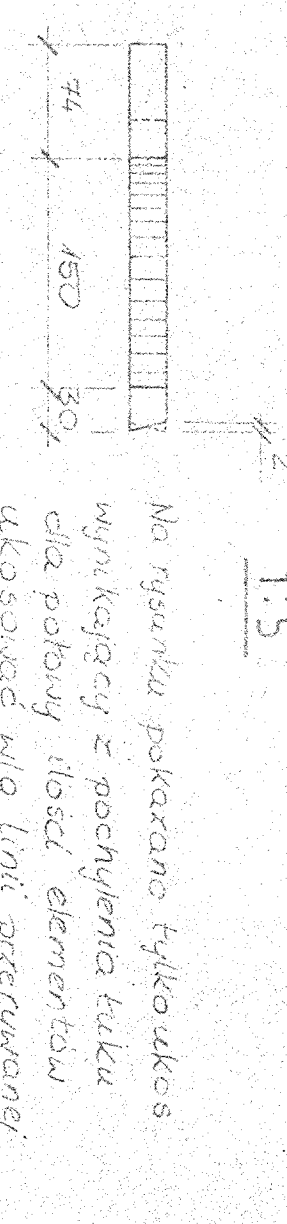 1:5
74
150
30
2
Na rysunku pokazano tylko ukos
wynikający z pochylenia łuku
dla połowy ilości elementów
ukosować w/o linii przerywanej